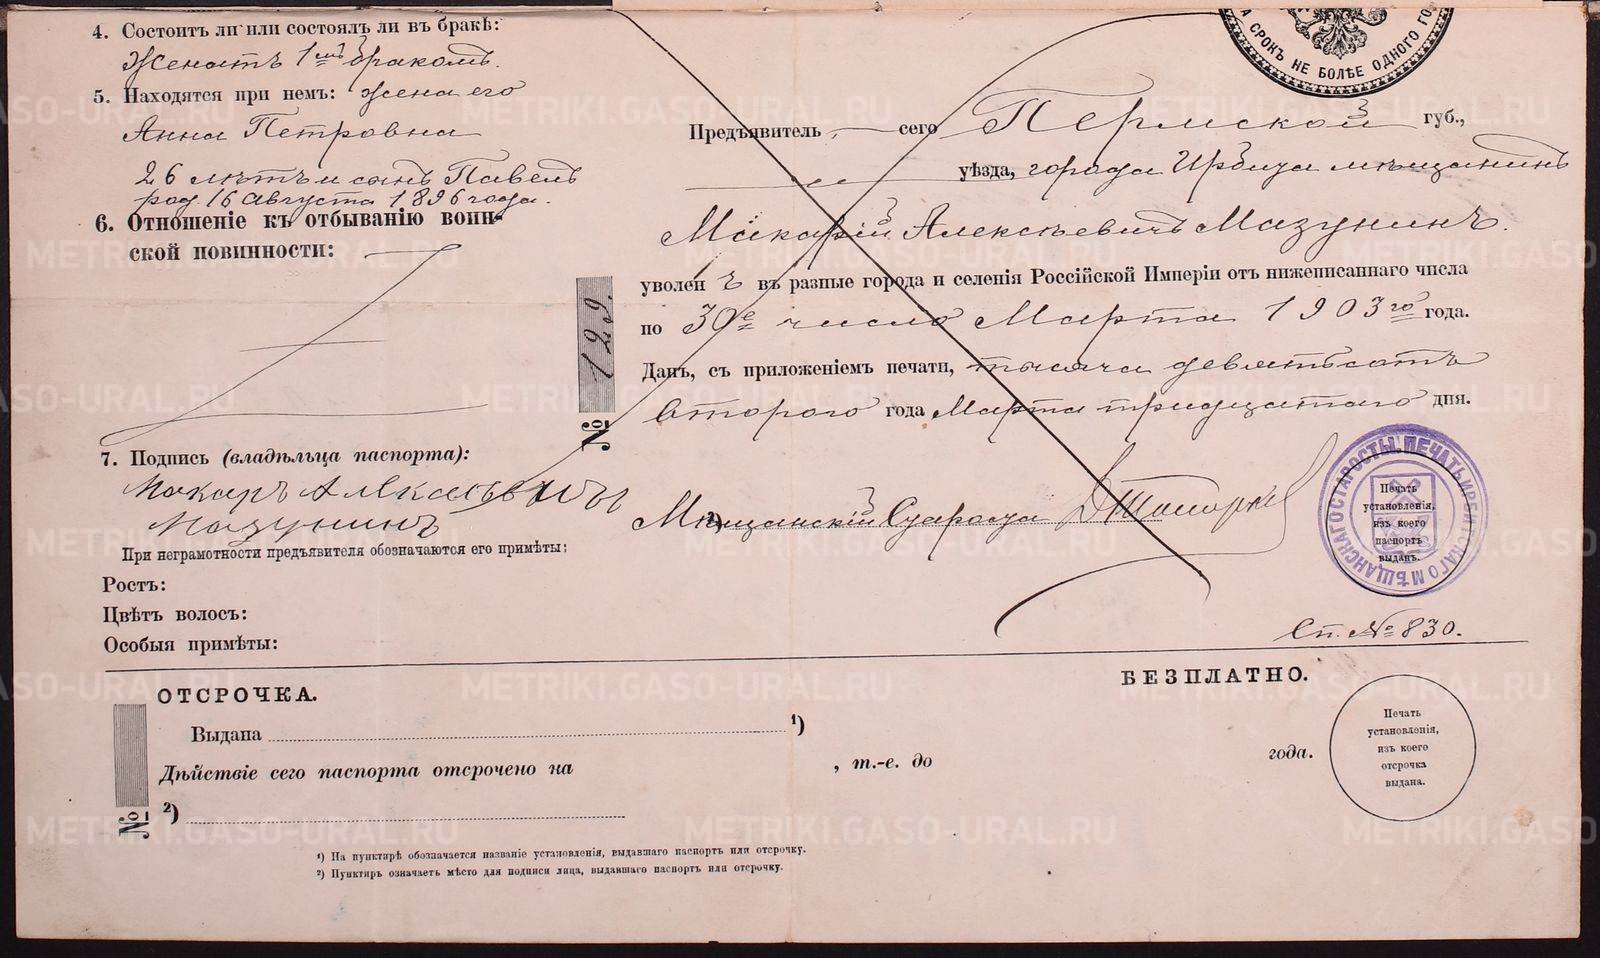 4. Состоитъ ли или состоялъ ли въ бракѣ:
Женатъ 1мъ бракомъ.
5. Находятся при немъ: жена его
Анна Петровна
26 лѣтъ и сынъ Павелъ
род. 16 Августа 1896 года.
6. Отношеніе къ отбыванію воин-
ской повинности:
7. Подпись (владѣльца паспорта):
Макаръ
Мазунинъ
При неграмотности предъявителя обозначаются его примѣты:
Ростъ:
Цвѣтъ волосъ:
Особыя примѣты:
А СРОКЪ НЕ БОЛѢЕ ОДНОГО ГО
Предъявитель сего Пермской губ.,
уѣзда, города Ирбита мѣщанинъ
Макарій Алексѣевичъ Мазунинъ.
уволенъ въ разные города и селенія Россійской Имперіи отъ нижеписаннаго числа
по 30е число Марта 1903го года.
Данъ, съ приложеніемъ печати, тысяча девятьсотъ
второго года Марта тридцатаго дня.
№ 129.
Мѣщанскій Староста
ПЕЧАТЬ ИРБИТСКАГО МѢЩАНСКАГО СТАРОСТЫ
Печать
установленія,
изъ коего
паспортъ
выданъ.
Сп. № 830.
ОТСРОЧКА.
БЕЗПЛАТНО.
Выдана 1)
Дѣйствіе сего паспорта отсрочено на , т.-е. до года.
№ 2)
Печать
установленія,
изъ коего
отсрочка
выдана.
1) На пунктирѣ обозначается названіе установленія, выдавшаго паспортъ или отсрочку.
2) Пунктиръ означаетъ мѣсто для подписи лица, выдавшаго паспортъ или отсрочку.
METRIKI.GASO-URAL.RU